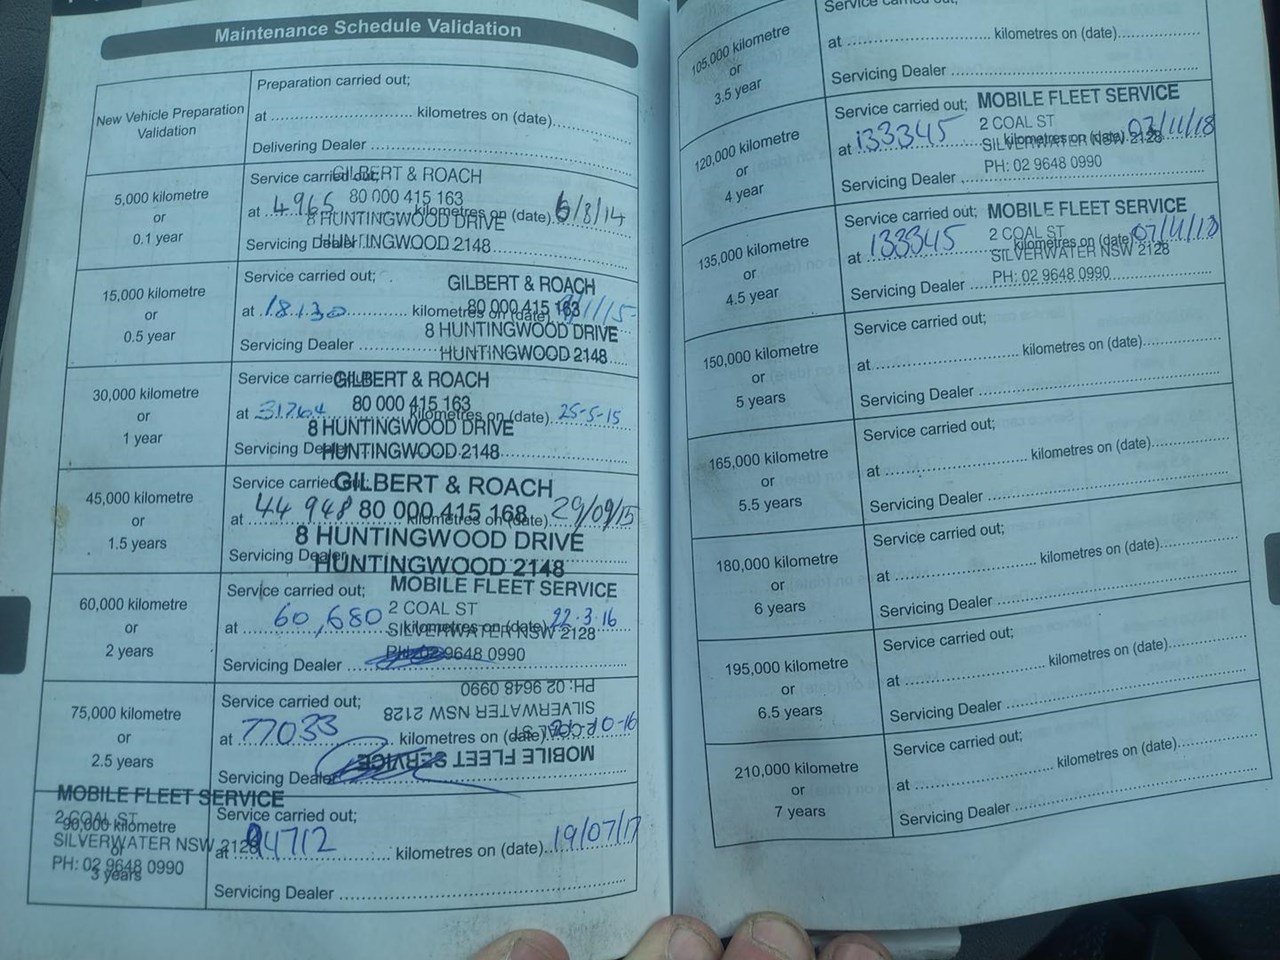 Maintenance Schedule Validation
New Vehicle Preparation
Validation
Preparation carried out;
at .......... kilometres on (date)..........
Delivering Dealer ..........
5,000 kilometre
or
0.1 year
Service carried out;
GILBERT & ROACH
80 000 415 163
at 4965 kilometres on (date) 6/8/14
8 HUNTINGWOOD DRIVE
Servicing Dealer
HUNTINGWOOD 2148
15,000 kilometre
or
0.5 year
Service carried out;
GILBERT & ROACH
80 000 415 163
at 18130 kilometres on (date) /1/15
8 HUNTINGWOOD DRIVE
Servicing Dealer
HUNTINGWOOD 2148
30,000 kilometre
or
1 year
Service carried
GILBERT & ROACH
80 000 415 163
at 31764 kilometres on (date) 25-5-15
8 HUNTINGWOOD DRIVE
Servicing Dealer
HUNTINGWOOD 2148
45,000 kilometre
or
1.5 years
Service carried out;
GILBERT & ROACH
80 000 415 168
at 44 948 kilometres on (date) 29/09/15
8 HUNTINGWOOD DRIVE
Servicing Dealer
HUNTINGWOOD 2148
60,000 kilometre
or
2 years
Service carried out;
MOBILE FLEET SERVICE
2 COAL ST
at 60,680 kilometres on (date) 22.3.16
SILVERWATER NSW 2128
Servicing Dealer
PH: 02 9648 0990
75,000 kilometre
or
2.5 years
Service carried out;
PH: 02 9648 0990
SILVERWATER NSW 2128
at 77033 kilometres on (date) -10-16
2 COAL ST
MOBILE FLEET SERVICE
Servicing Dealer
90,000 kilometre
or
3 years
MOBILE FLEET SERVICE
2 COAL ST
SILVERWATER NSW 2128
PH: 02 9648 0990
Service carried out;
at 94712 kilometres on (date) 19/07/17
Servicing Dealer ..........
105,000 kilometre
or
3.5 year
Service carried out;
at .......... kilometres on (date)..........
Servicing Dealer ..........
120,000 kilometre
or
4 year
Service carried out;
MOBILE FLEET SERVICE
2 COAL ST
at 133345 kilometres on (date) 07/11/18
SILVERWATER NSW 2128
PH: 02 9648 0990
Servicing Dealer
135,000 kilometre
or
4.5 year
Service carried out;
MOBILE FLEET SERVICE
2 COAL ST
at 133345 kilometres on (date) 07/11/18
SILVERWATER NSW 2128
PH: 02 9648 0990
Servicing Dealer
150,000 kilometre
or
5 years
Service carried out;
at .......... kilometres on (date)..........
Servicing Dealer ..........
165,000 kilometre
or
5.5 years
Service carried out;
at .......... kilometres on (date)..........
Servicing Dealer ..........
180,000 kilometre
or
6 years
Service carried out;
at .......... kilometres on (date)..........
Servicing Dealer ..........
195,000 kilometre
or
6.5 years
Service carried out;
at .......... kilometres on (date)..........
Servicing Dealer ..........
210,000 kilometre
or
7 years
Service carried out;
at .......... kilometres on (date)..........
Servicing Dealer ..........